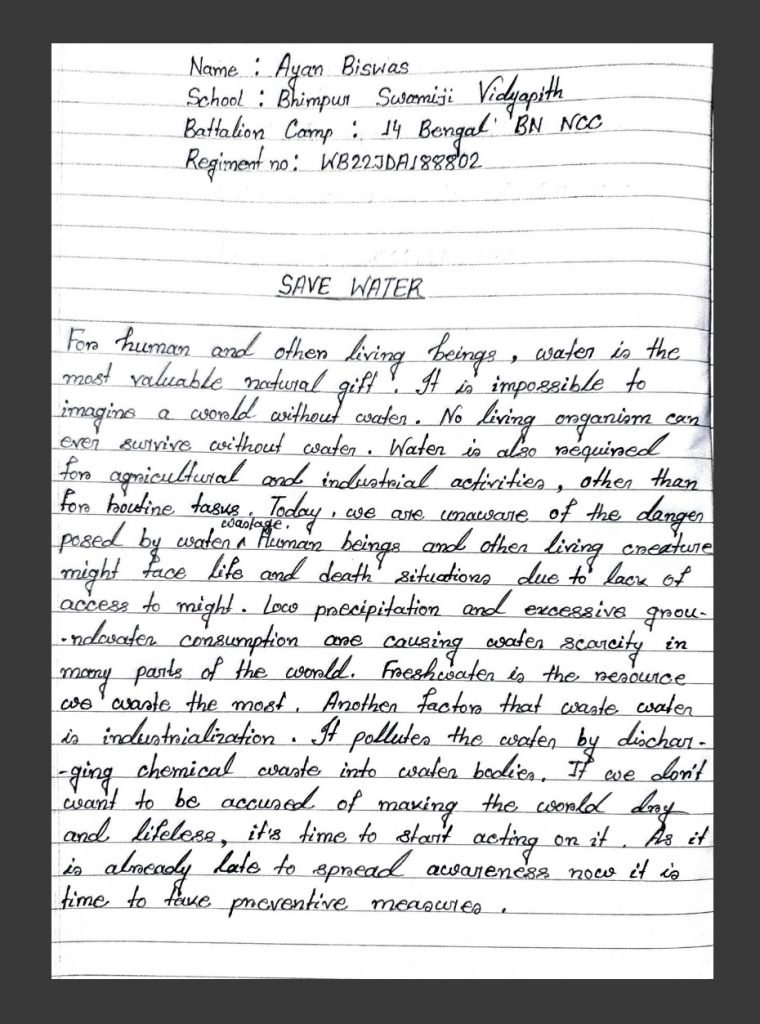 Name : Ayan Biswas
School : Bhimpur Swamiji Vidyapith
Battalion Camp : 14 Bengal BN NCC
Regiment no: WB22JDA188802
SAVE WATER
For human and other living beings, water is the
most valuable natural gift. It is impossible to
imagine a world without water. No living organism can
ever survive without water. Water is also required
for agricultural and industrial activities, other than
for boutine tasks. Today, we are unaware of the danger
wastage.
posed by water ^ Human beings and other living creature
might face life and death situations due to lack of
access to might. Low precipitation and excessive grou-
-ndwater consumption are causing water scarcity in
many parts of the world. Freshwater is the resource
we waste the most. Another factor that waste water
is industrialization. It pollutes the water by dischar-
-ging chemical waste into water bodies. If we don't
want to be accused of making the world dry
and lifeless, it's time to start acting on it. As it
is already late to spread awareness now it is
time to take preventive measures.